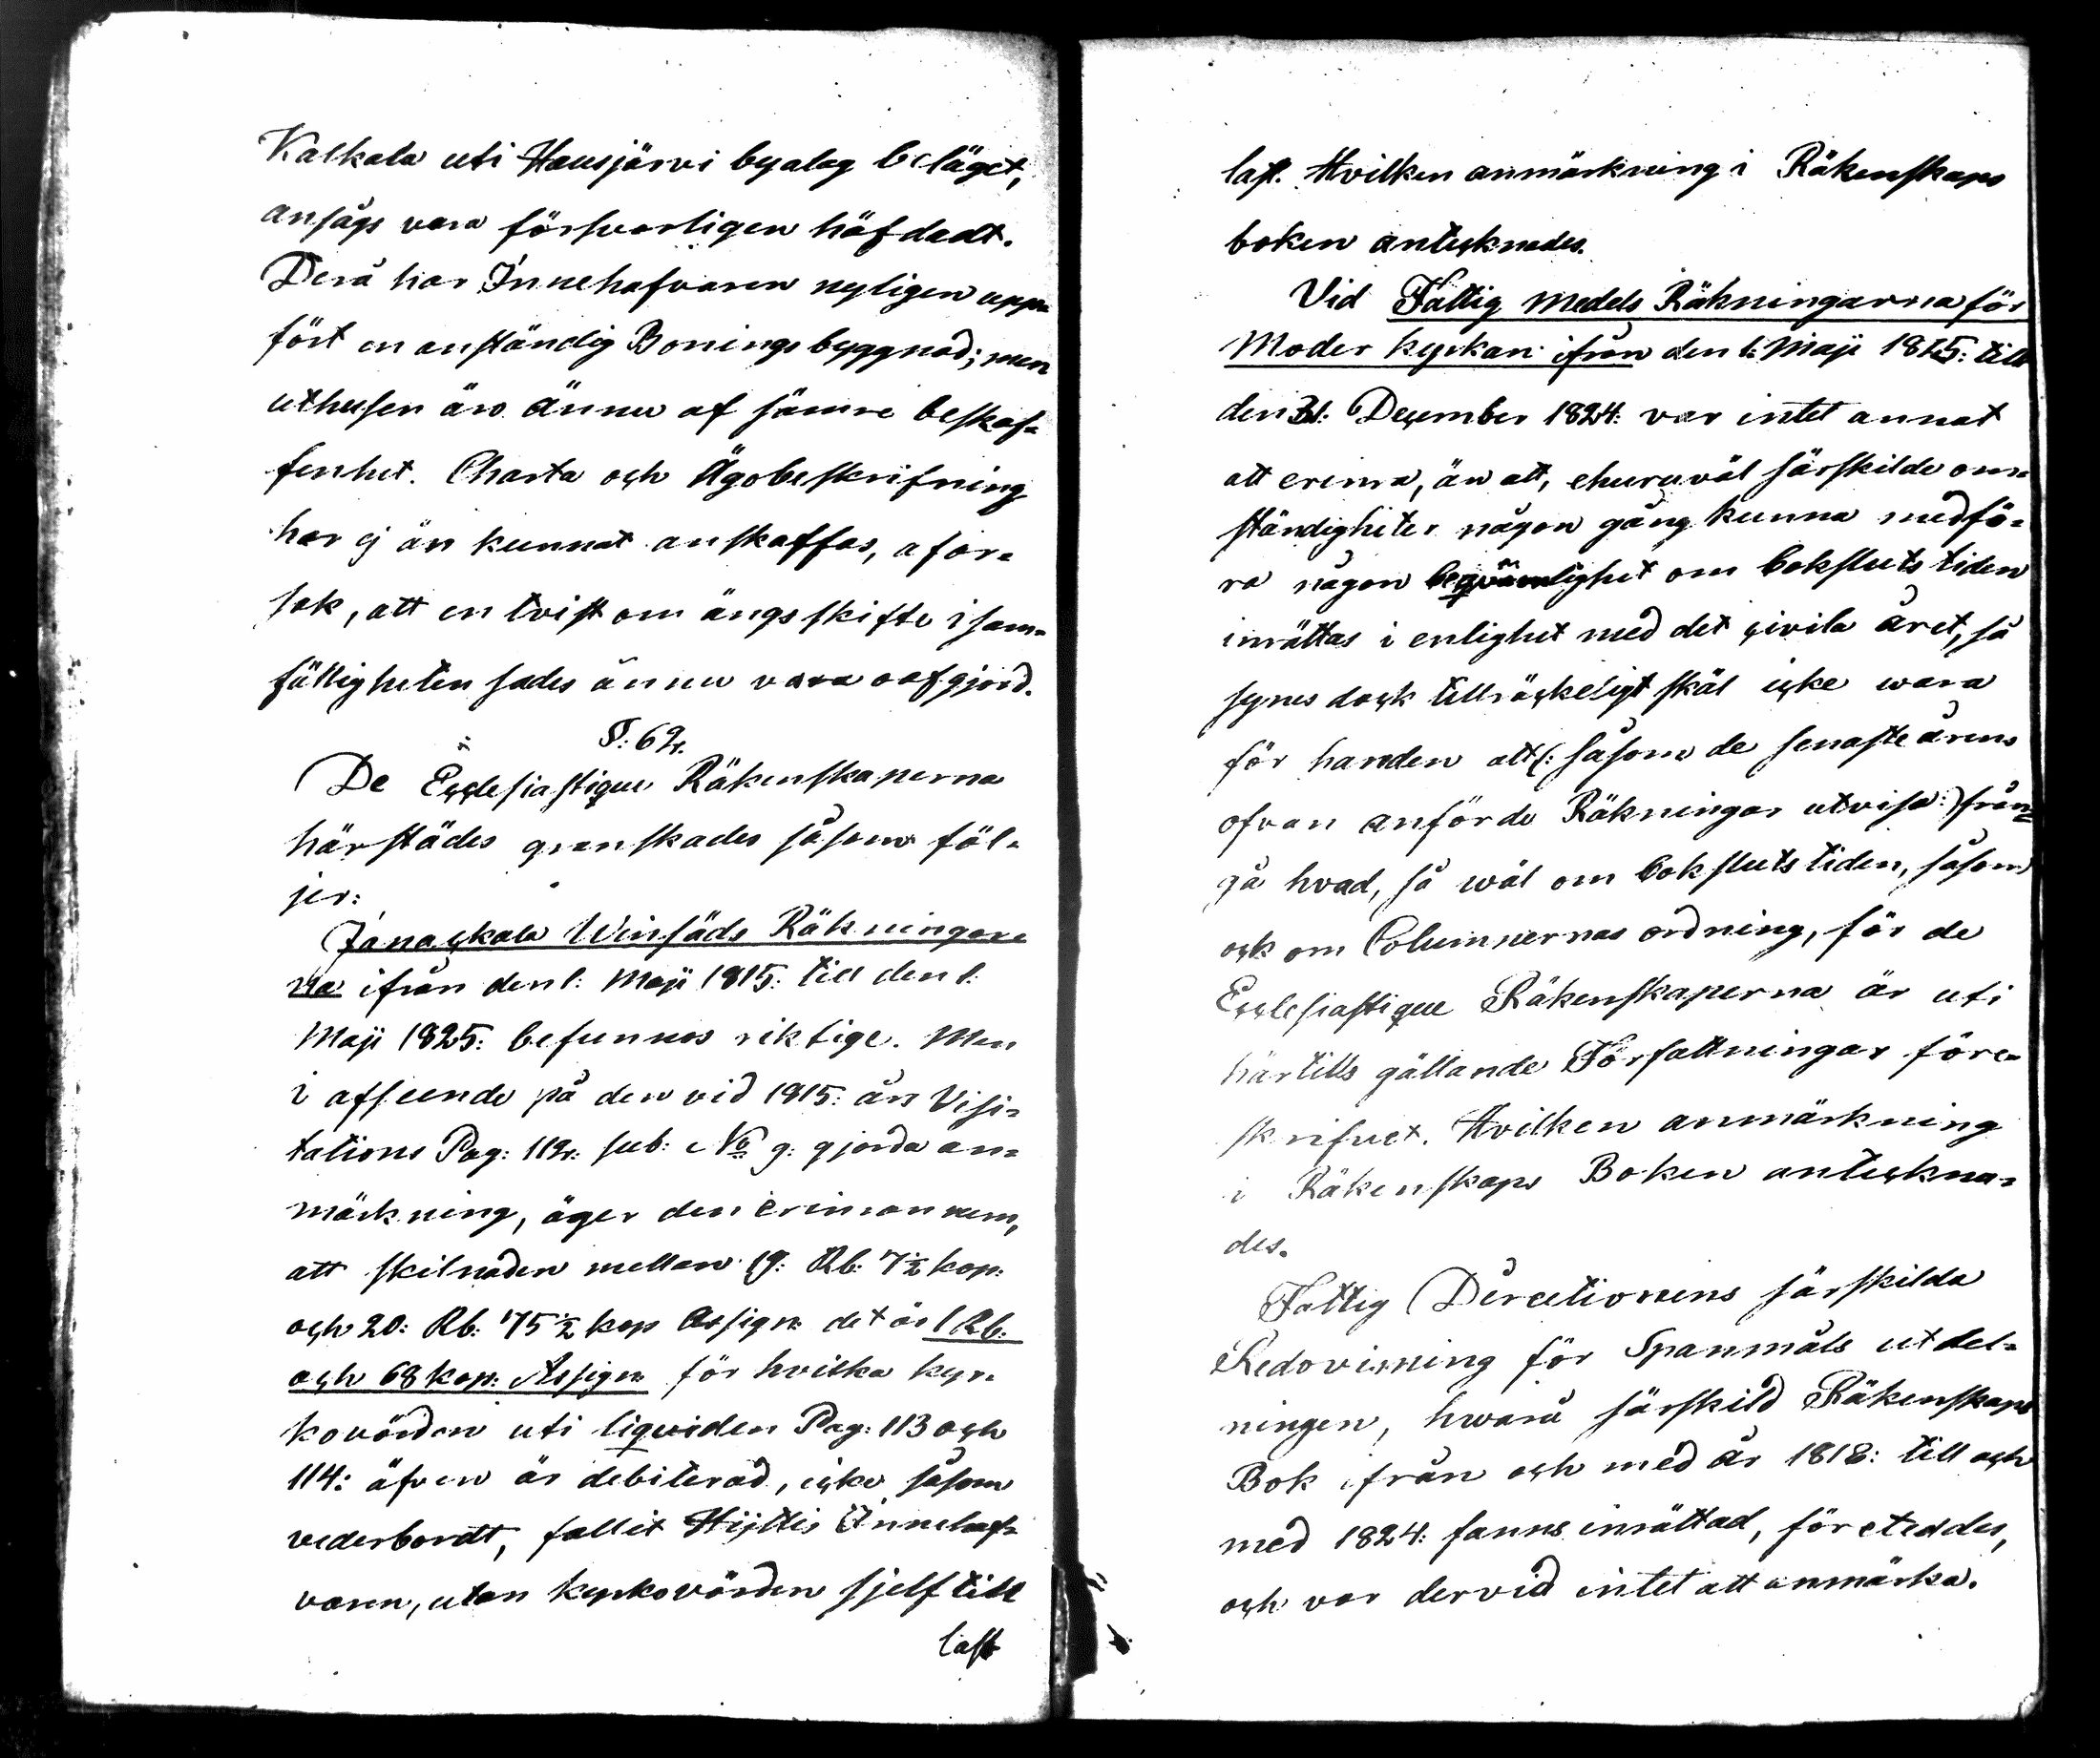 Kalkala uti Hausjärvi byalag beläget,
ansågs vara försvarligen häfdadt.
Derå har Innehafvaren nyligen upp=
fört en anständig Bonings byggnad; men
uthusen äro ännu af sämre beskaf=
fenhet. Charta och Ägobeskrifning
har ej än kunnat anskaffas, af or=
sak, att en tvist om ängsskifte i sam=
fälligheten sades ännu vara oafgjord.
§: 62.
De Ecclesiastique Räkenskaperna
härstädes granskades såsom föl=
jer:
Janackala Winsäds Räkningar=
na ifrån den 1: Maji 1815: till den 1:
Maji 1825: befunnos riktige. Men
i afseende på den vid 1815: års Visi=
tations Pag: 112: sub: No 9: gjorda an=
märkning, äger den erinran rum,
att skilnaden mellan 19: Rb: 7½ kop:
och 20: Rb: 75½ kop Assign: det är 1 Rb:
och 68 kop: Assign för hvilka kyr=
kovärden uti liqviden Pag: 113 och
114: äfven är debiterad, icke såsom
vederbordt, fallit Hijttis Innehaf=
varen, utan kyrkovärden sjelf till
last
last. Hvilken anmärkning i Räkenskaps
boken antecknades.
Vid Fattig medels Räkningarna för
Moder kyrkan ifrån den 1: Maji 1815: till
den 31: December 1824: var intet annat
att erinra, än att, ehuruväl särskilde om=
ständigheter någon gång kunna medfö=
ra någon beqvämlighet om bokslutstiden
inrättas i enlighet med det civila året, så
synes dock tillräckeligt skäl icke wara
för handen att (: såsom de senaste årens
ofvan anförde Räkningar utvisa :) från=
gå hvad, så wäl om bokslutstiden, såsom
ock om Columnernas ordning, för de
Ecclesiastique Räkenskaperna är uti
härtills gällande Författningar före=
skrifvet. Hvilken anmärkning
i Räkenskaps Boken anteckna=
des.
Fattig Directionens särskilda
Redovisning för Spanmåls utdel=
ningen, hwarå särskild Räkenskaps
Bok ifrån och med år 1818: till och
med 1824: fanns inrättad, företeddes,
och var dervid intet att anmärka.